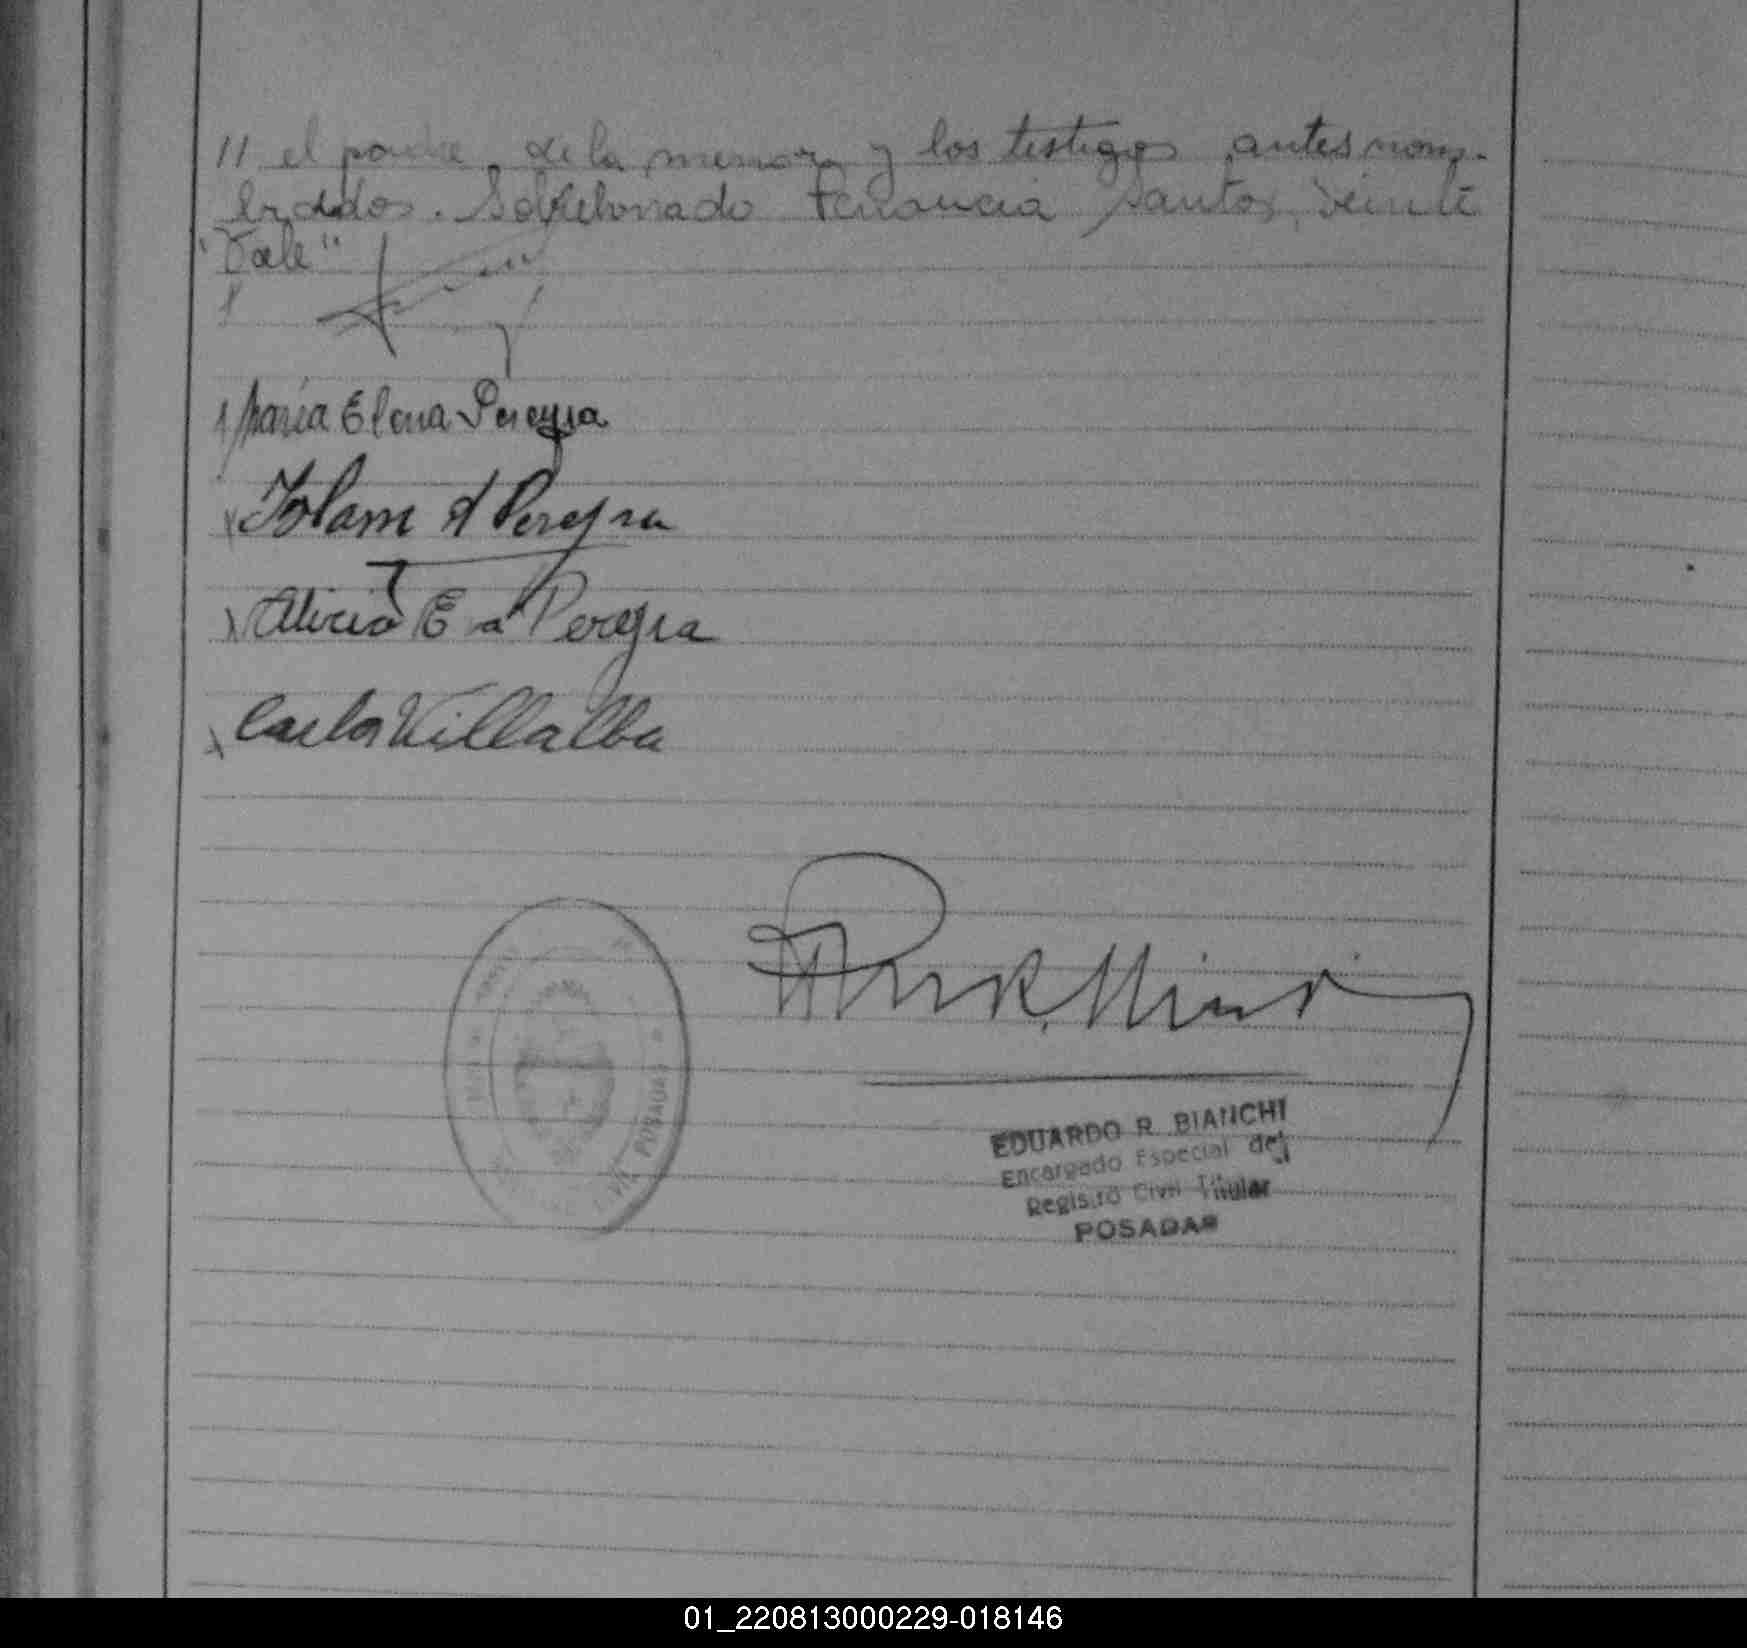 // el padre de la menor y los testigos antes nom-
brados. Sobreborrado Venancia Santos, veinte
"Vale"
Maria Elena Pereyra
A Pereyra
Alicia E a Pereyra
Carlos Villalba
CIVIL POSADAS
EDUARDO R. BIANCHI
Encargado Especial del
Registro Civil Titular
POSADAS
01_220813000229-018146